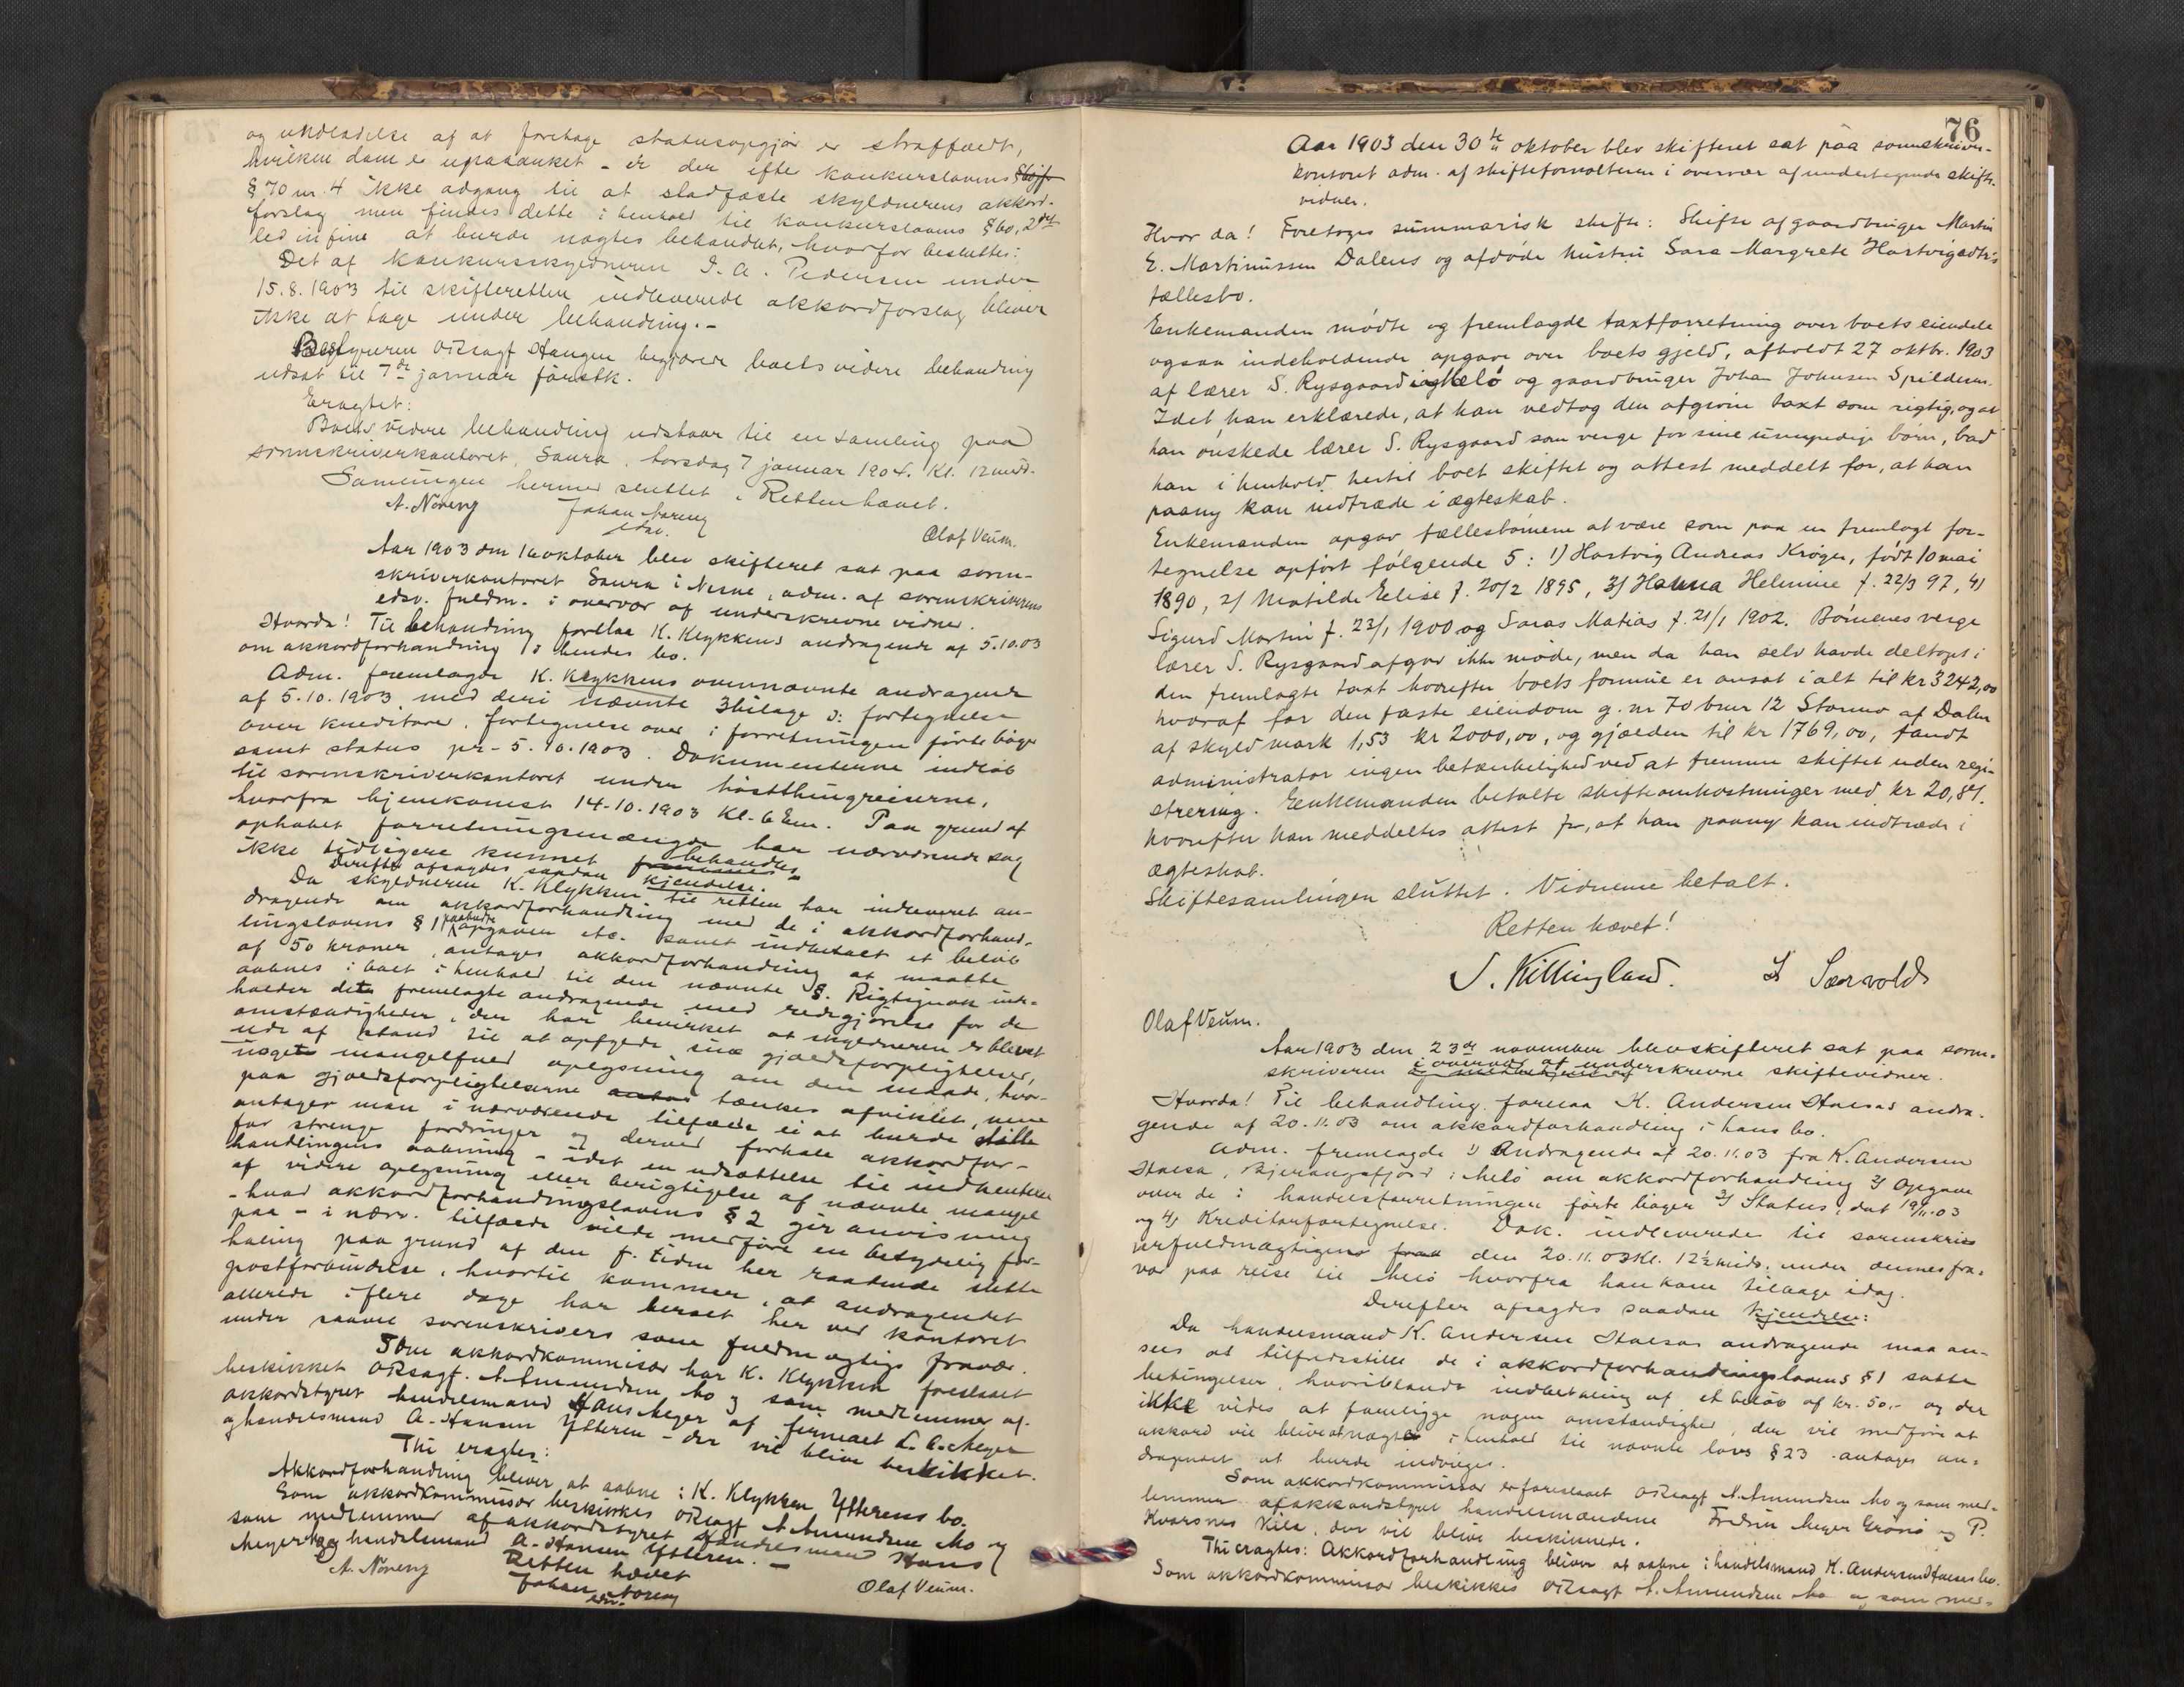 og undladelse af at foretage statusopgjør er straffældt,
hvilken dom er upaaanket - er der efter konkurslovens
§ 70 nr. 4 ikke adgang til at stadfæste skyldnerens akkord-
forslag men findes dette i henhold til konkurslovens § 60, 2det
led in fine at burde nægtes behandlet, hvorfor besluttes:
Det af konkursskyldneren I. A. Pedersen under
15.8.1903 til skifteretten indleverede akkordforslag bliver
ikke at tage under behandling.-
Bestyreren Orsagf Haugen begjærede boets videre behandling
udsat til 7de januar førstk.
Eragtet:
Boets videre behandling udstaar til en samling paa
sorenskriverkontoret, Saura, torsdag 7 januar 1904. Kl. 12 midd.
Samlingen hermed sluttet. Retten hævet.
A. Noreng Johan Noreng Olaf Veum.
edsv.
Aar 1903 den 16 oktober blev skifteret sat paa soren-
skriverkontoret Saura i Nesne, adm. af sorenskriverens
edsv. fuldm. i overvær af underskrevne vidner.
Hvorda! Til behandling forelaa K. Klykkens andragende af 5.10.03
om akkordforhandling i hendes bo.
Adm. fremlagde K. Klykkens ovennævnte andragende
af 5.10.1903 med deri nævnte 3 bilage ɔ: fortegnelse
over kreditorer, fortegnelse over i forretningen førte bøger
samt status pr. 5.10.1903. Dokumenterne indløb
til sorenskriverkontoret under høstthingreiserne,
hvorfra hjemkomst 14-10.1903 Kl. 6 Em. Paa grund af
ophobet forretningsmængde har nærværende sag
ikke tidligere kunnet behandles
Derefter afsagdes saadan kjendelse.
Da skyldneren K. Klykken til retten har indleveret an-
dragende om akkordforhandling med de i akkordforhand-
lingslovens § 1 paabudte opgaver etc. samt indbetalt et beløb
af 50 kroner, antages akkordforhandling at maatte
aabnes i boet i henhold til den nævnte §. Rigtignok inde-
holder det fremlagte andragende med redegjørelse for de
omstændigheder, der har bevirket at skyldneren er blevet
ude af stand til at opfylde sine gjældsforpligtelser,
noget mangelfuld oplysning om den maade, hvor-
paa gjældsforpligtelserne tænkes afviklet, men
antager man i nærværende tilfælde ei at burde stille
for strenge fordringer og derved forhale akkordfor-
handlingens aabning - idet en udsættelse til indhentelse
af videre oplysning eller berigtigelse af nævnte mangel
- hvad akkordforhandlingslovens § 2 gir anvisning
paa - i nærv. tilfælde vilde medføre en betydelig for-
haling paa grund af den f. tiden her raadende slette
postforbindelse, hvortil kommer, at andragendet
allerede i flere dage har beroet her ved kontoret
under saavel sorenskrivers som fuldmægtigs fravær.
Som akkordkommisær har K. Klykken foreslaaet
beskikket Orsagf. A. Amundsen Mo og som medlemmer af
akkordstyret handelsmand Hans Meyer af firmaet L. A. Meyer
og handelsmand A. Hansen Ytteren - der vil blive beskikket.
Thi eragtes:
Akkordforhandling bliver at aabne i K. Klykken Ytterens bo.
Som akkordkommissær beskikkes Orsagf A. Amundsen Mo og
som medlemmer af akkordstyret handelsmand Hans
Meyer og handelsmand A. Hansen Ytteren. -
Retten hævet
A. Noreng Johan Noreng Olaf Veum.
edsv.
76
Aar 1903 den 30te oktober blev skifteret sat paa sorenskriver-
kontoret adm. af skifteforvalteren i overvær af undertegnede skifte-
vidner.
Hvor da! Foretoges summarisk skifte: Skifte af gaardbruger Martin
E. Martinussen Dalens og afdøde hustru Sara Margrete Hartvigsdtr's
fællesbo.
Enkemanden mødte og fremlagde taxtforretning over boets eiendele
ogsaa indeholdende opgave over boets gjeld, afholdt 27 oktbr. 1903
af lærer S. Rysgaard i Melø og gaardbruger Johan Johnsen Spildern.
Idet han erklærede, at han vedtog den afgivne taxt som rigtig, og at
han ønskede lærer S. Rysgaard som verge for sine umyndige børn, bad
han i henhold hertil boet skiftet og attest meddelt for, at han
paany kan indtræde i ægteskab.
Enkemanden opgav fællesbørnene at være som paa en fremlagt for-
tegnelse opført følgende 5: 1) Hartvig Andreas Krøger, født 10 mai
1890, 2) Matilde Elise f. 20/2 1895, 3) Hanna Helmine f. 22/3 97, 4)
Sigurd Martin f. 23/1 1900 og Saras Matias f. 21/1 1902. Børnenes verge
lærer S. Rysgaard afgav ikke møde, men da han selv havde deltaget i
den fremlagte taxt hvorefter boets formue er ansat i alt til kr 3242,00
hvoraf for den faste eiendom g. nr 70 bnr 12 Stormo af Dalen
af skyld mark 1,53 kr 2000,00, og gjælden til kr 1769,00, fandt
administrator ingen betænkelighed ved at fremme skiftet uden regi-
strering. Enkemanden betalte skifteomkostninger med kr 20,84.
hvorefter han meddeltes attest for, at han paany kan indtræde i
ægteskab.
Skiftesamlingen sluttet. Vidnerne betalt.
Retten hævet!
S. Killingland. Sørvold
Olaf Veum.
Aar 1903 den 23de november blev skifteret sat paa soren-
skriveren i overvær af underskrevne skiftevidner.
Hvorda! Til behandling forelaa K. Andersen Halsas andra-
gende af 20.11.03 om akkordforhandling i hans bo.
Adm. fremlagde 1) Andragende af 20.11.03 fra K. Andersen
Halsa, Bjerangsfjord i Melø om akkordforhandling 2) Opgave
over de i handelsforretningen førte bøger 3) Status, dat 19/11.03
og 4) Kreditorfortegnelse. Dok. indleverede til sorenskri-
verfuldmægtigens den 20.11.03 Kl. 12½ midd. under dennes fra-
vær paa reise til Melø hvorfra han kom tilbage idag.
Derefter afsagdes saadan kjendelse:
Da handelsmand K. Andersen Halsas andragende maa an-
sees at tilfredsstille de i akkordforhandlingslovens § 1 satte
betingelser, hvoriblandt indbetaling af et beløb af kr. 50,- og der
ikke vides at foreligge nogen omstændighed, der vil medføre at
akkord vil blive at nægte i henhold til nævnte lovs § 23 antages an-
dragendet at burde indvilges.
Som akkordkommissær er foreslaaet Orsagf A. Amundsen Mo og som med-
lemmer af akkordstyret handelsmændene Fredrik Meyer Grønø og P.
Kvarsnes Kila, der vil blive beskikkede.
Thi eragtes: Akkordforhandling bliver at aabne i handelsmand K. Andersen Halsas bo.
Som akkordkommissær beskikkes Orsagf A. Amundsen Mo og som med-